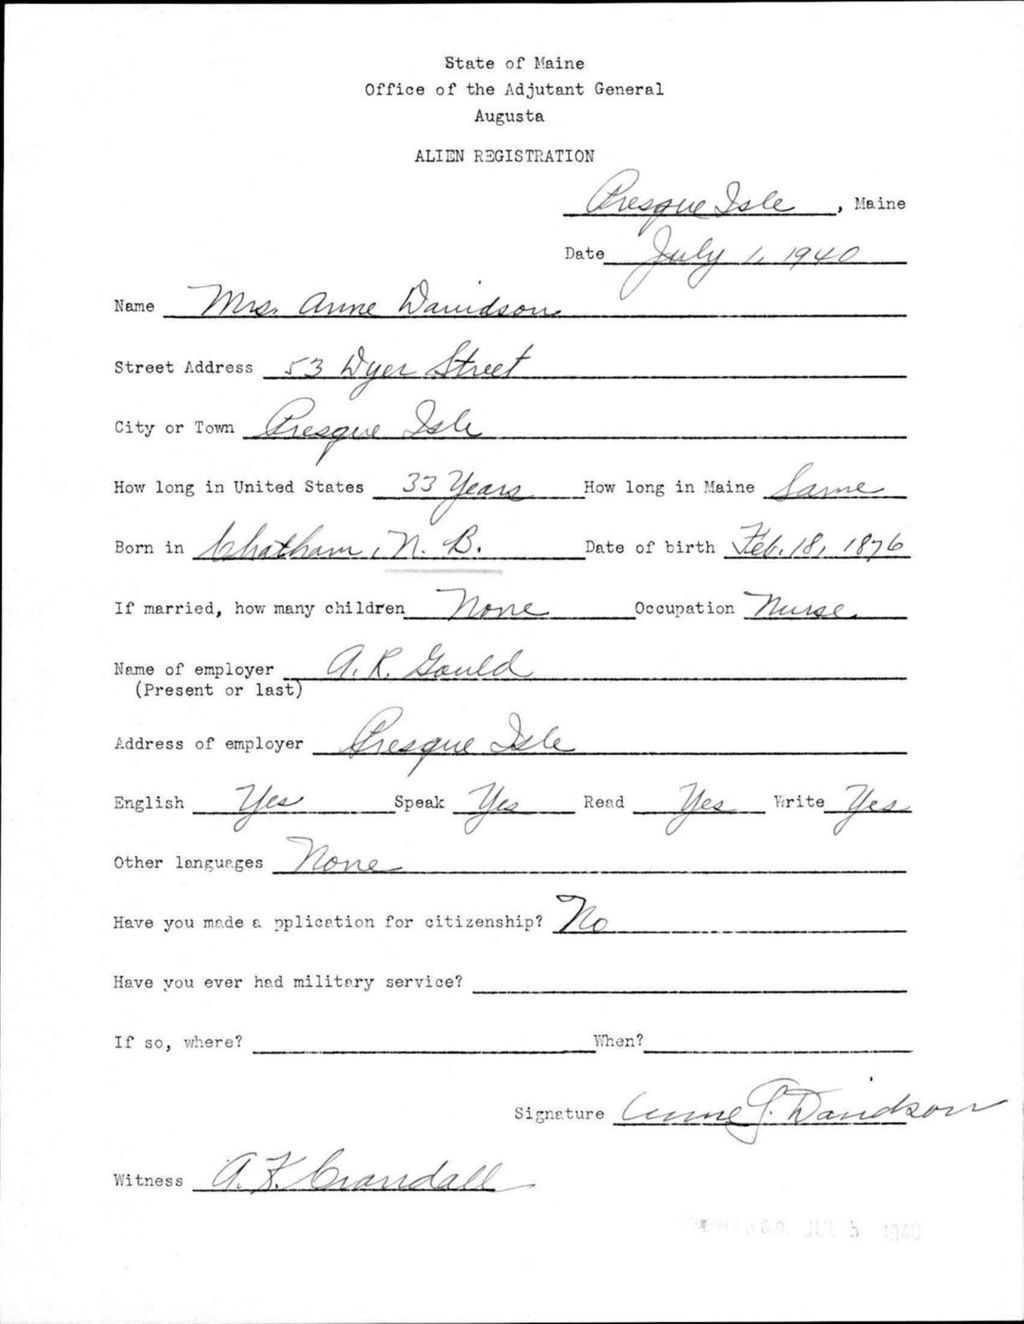 State of Maine
Office of the Adjutant General
Augusta
ALIEN REGISTRATION
Presque Isle, Maine
Date July 1, 1940
Name Mrs. Anne Davidson
Street Address 53 Dyer Street
City or Town Presque Isle
How long in United States 33 Years How long in Maine Same
Born in Chatham, N. B. Date of birth Feb. 18, 1876
If married, how many children None Occupation Nurse
Name of employer A. R. Gould
(Present or last)
Address of employer Presque Isle
English Yes Speak Yes Read Yes Write Yes
Other languages None
Have you made a pplication for citizenship? No
Have you ever had military service?
If so, where? When?
Signature Anne G. Davidson
Witness A. K. Crandall
JUL 5 1940